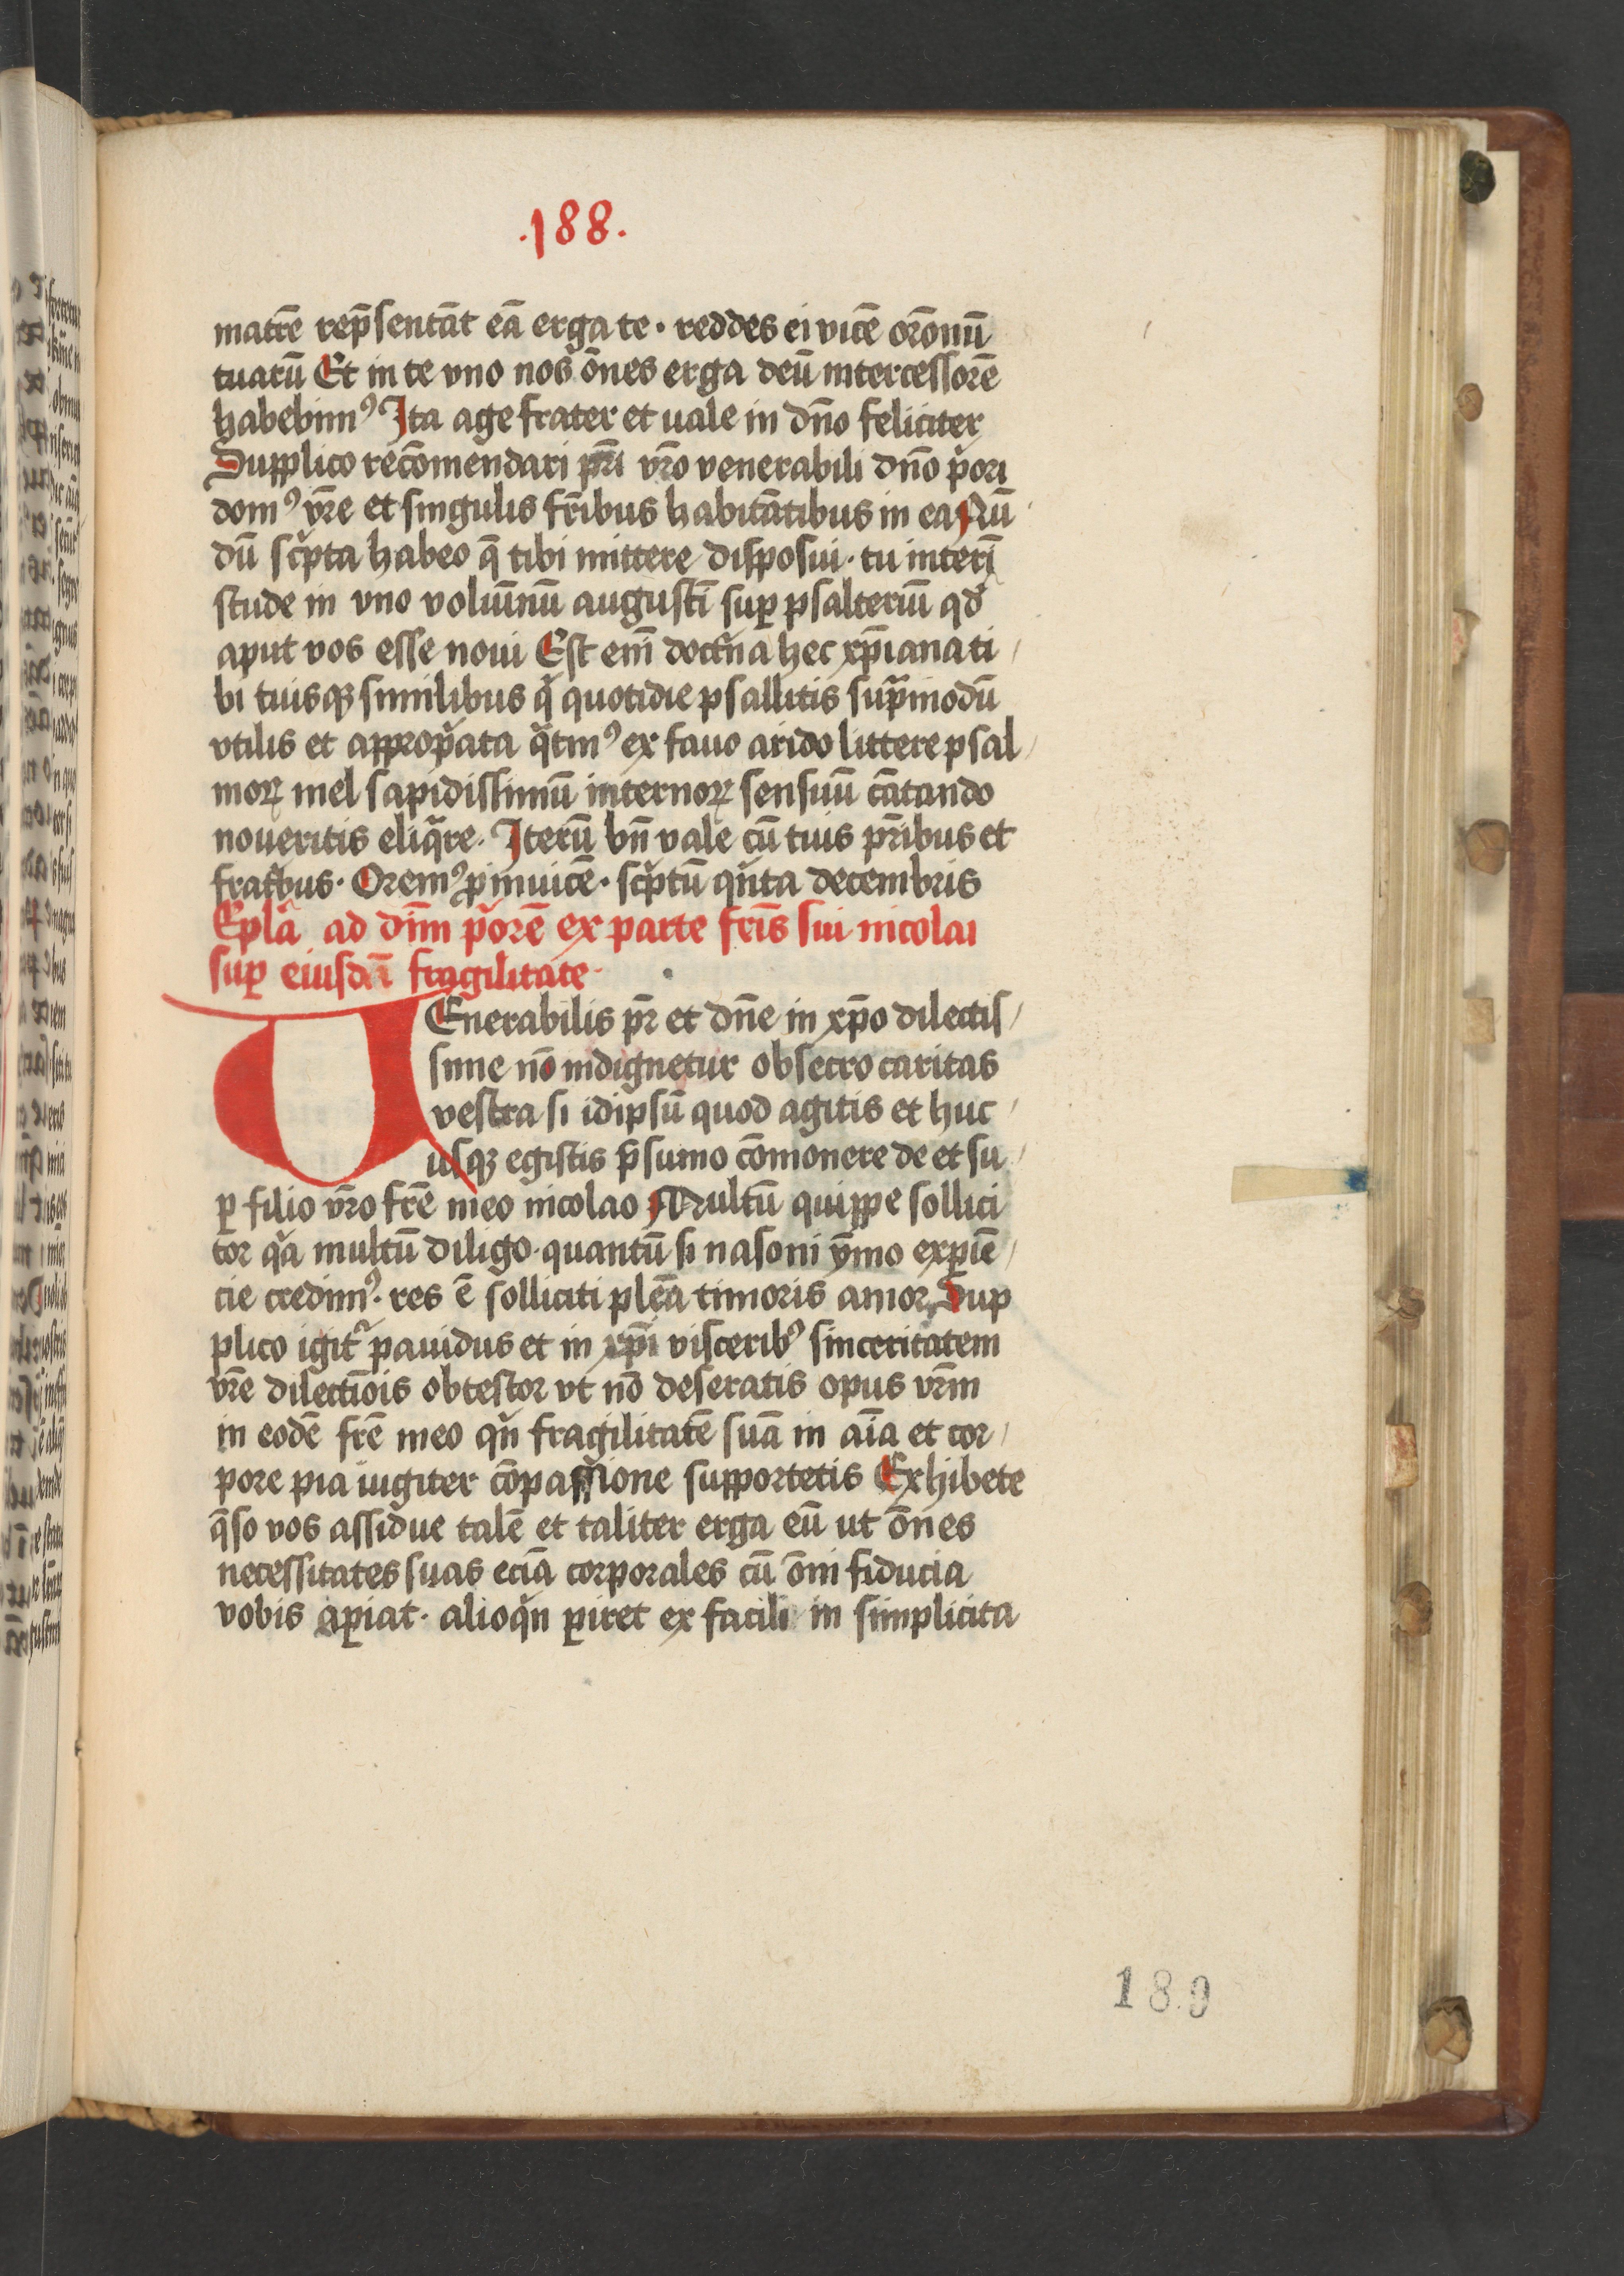 .188.
matrē rep̄sentāt eā erga te · reddes ei vicē orōnū
tuarū Et in te vno nos ōnes erga deū intercessorē
habebimꝰ Ita age frater et uale in dn̄o feliciter
Supplico recōmendari pr̄i vr̄o venerabili dn̄o p̄ori
domꝰ vr̄e et singulis fr̄ibus habitātibus in ea Nū
dū sc̄pta habeo q̄ tibi mittere disposui · tu interī
stude in vno voluīnū augustī suꝑ psalteriū qd̄
aput vos esse noui Est em̄ doctn̄a hec xp̄iana ti/
bi tuisqꝫ similibus q̄ quotidie psallitis sup̄modū
vtilis et approp̄ata q̄tmꝰ ex fauo arido littere psal/
moꝝ mel sapidissimū internoꝝ sensuū cātando
noueritis eliq̄re · Iterū bn̄ vale cū tuis pr̄ibus et
frat̄bus · Oremꝰ ꝓ inuicē · sc̄ptū qn̄ta decembris
Epl̄a ad dn̄m p̄orē ex parte fr̄is sui nicolai
suꝑ eiusdē fragilitate ·
VEnerabilis pr̄ et dn̄e in xp̄o dilectis/
sime nō indignetur obsecro caritas
vestra si idipsū quod agitis et huc/
usqꝫ egistis p̄sumo cōmonere de et su/
ꝑ filio vr̄o fr̄e meo nicolao Multū quippe sollici
tor q̄a multū diligo · quantū si nasoni ȳmo exꝑiē/
cie credimꝰ · res ē solliciti plēa timoris amor, Sup
plico igit᷑ pauidus et in xp̄i visceribꝰ sinceritatem
vr̄e dilectiōis obtestor vt nō deseratis opus vr̄m
in eodē fr̄e meo qn̄ fragilitatē suā in aīa et cor/
pore pia iugiter cōpassione supportetis Exhibete
q̄so vos assidue talē et taliter erga eū ut ōnes
necessitates suas eciā corporales cū ōni fiducia
vobis aꝑiat · alioq̄n ꝑiret ex facili in simplicita
189